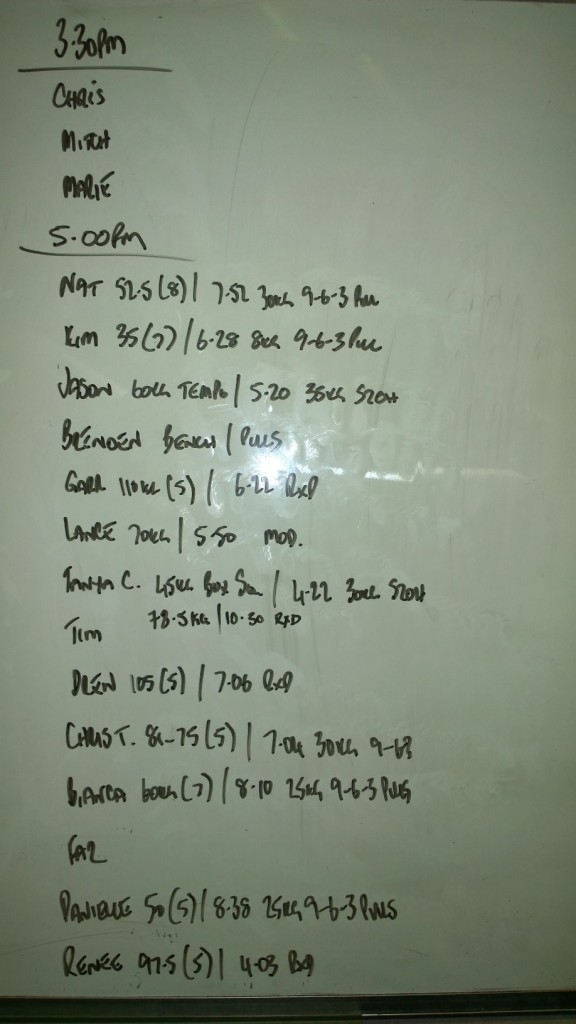 3.30PM
CHRIS
MITCH
MARIE
5.00PM
NAT 52.5 (8) | 7.52 30KG 9-6-3 PULL
KIM 35 (7) | 6.28 8KG 9-6-3 PULL
JASON 60KG TEMPO | 5.20 35KG
BRENDEN BENCH | PULLS
110KG (5) | 6.22 RXD
LANCE 70KG | 5.50 MOD.
TANYA C. 45KG BOX | 4.22 30KG
TIM 78.5KG | 10.30 RXD
DREW 105 (5) | 7.06 RXD
CHRIS T. 75 (5) | 7.04 30KG 9-6-3
BIANCA 60KG (7) | 8.10 25KG 9-6-3 PULLS
DANIELLE 50 (5) | 8.38 25KG 9-6-3 PULLS
RENEE 97.5 (5) | 4.03